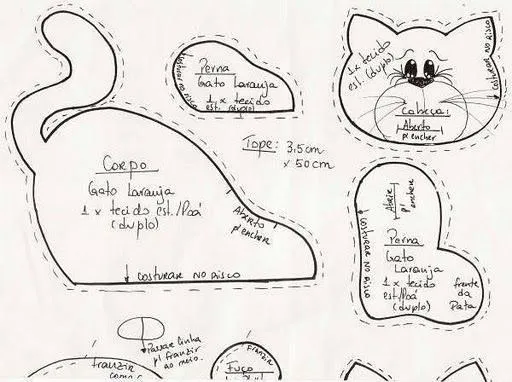 Perna
Gato Laranja
1 x tecido
est. (duplo)
costurar no risco
1x tecido
est. (duplo)
costurar no risco
Cabeça:
Aberto
p/ encher
Tope: 3,5cm
x 50cm
Corpo
Gato Laranja
1 x tecido est./Poá
(duplo)
Aberto
p/ encher
costurar no risco
Abrir
p/ encher
costurar no risco
Perna
Gato
Laranja
1 x tecido
est/Poá
(duplo)
frente
da
Pata
Passar linha
p/ franzir
ao meio.
franzir
como
franzir
Fuço